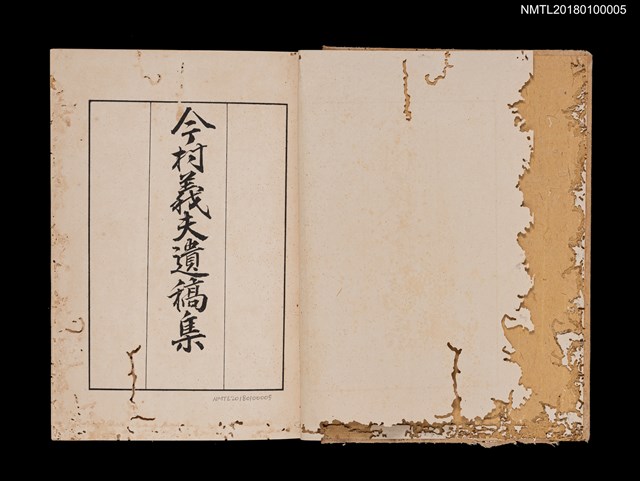 NMTL20180100005
今村義夫遺稿集
NMTL20180100005